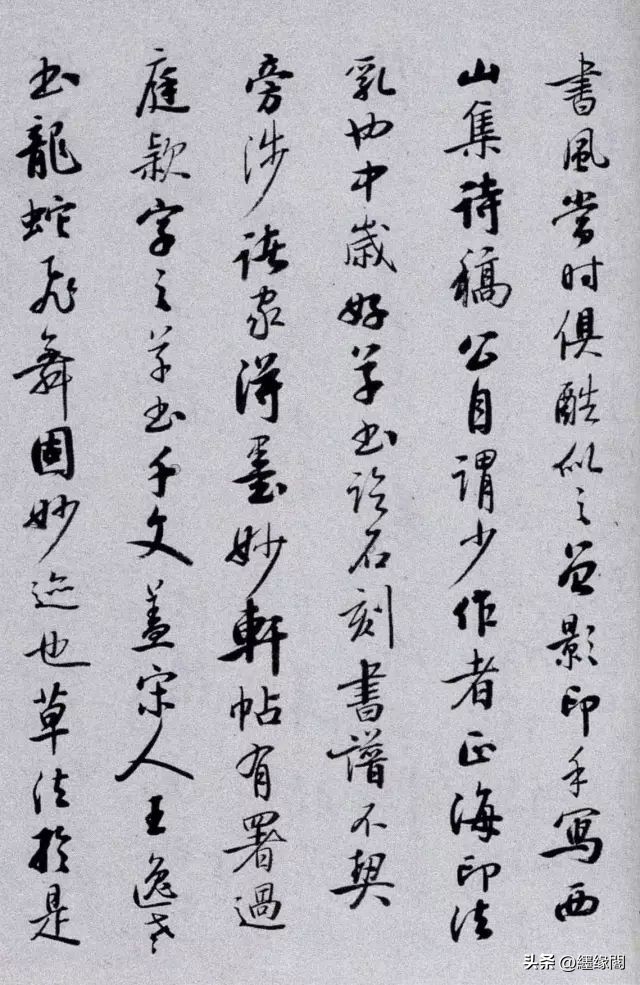 書風當时俱酷似之曾影印手寫西
山集詩稿公自謂少作者正海印法
乳也中歲好草书臨石刻書譜不契
旁涉諸家得墨妙軒帖有署過
庭款字之草书千文蓋宋人王逸老
书龍蛇飛舞固妙迹也草法於是
头条 @纒缘閣